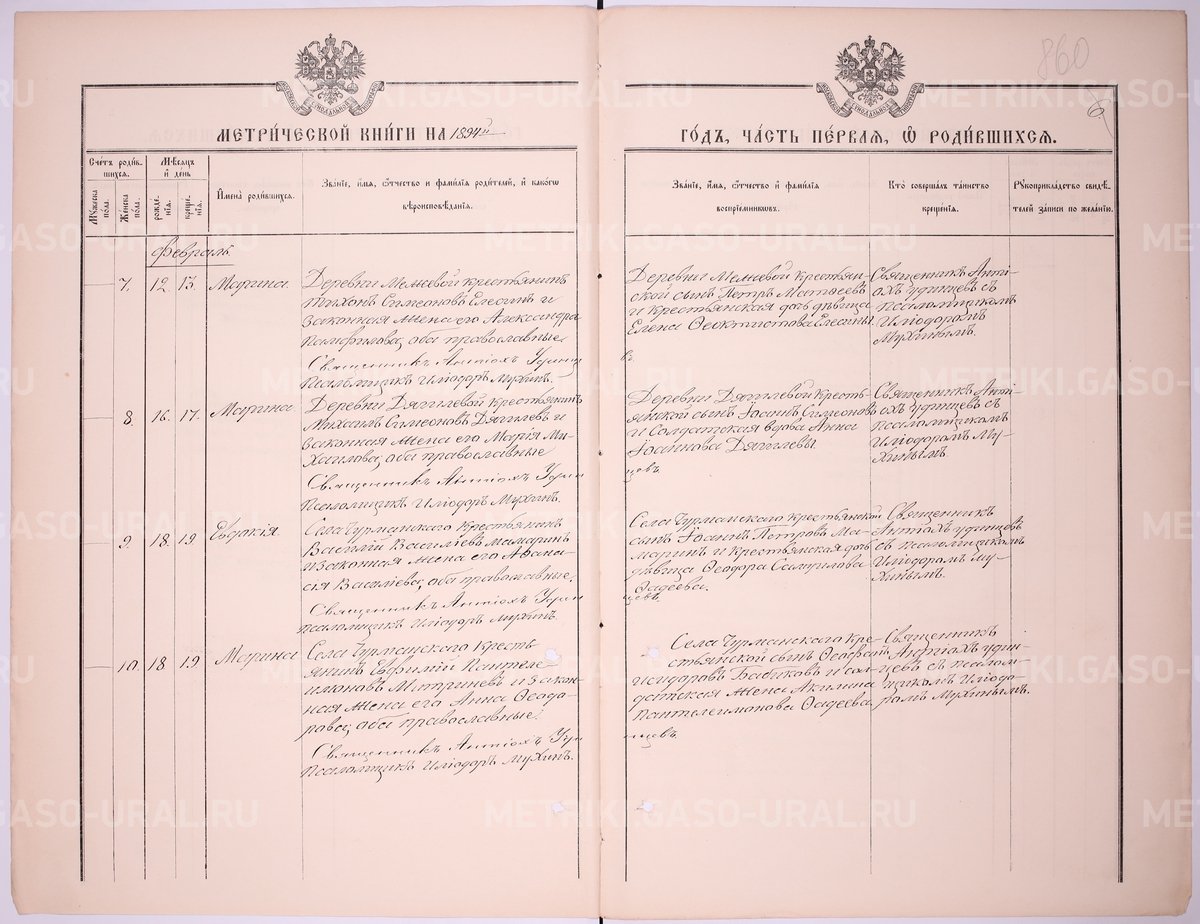 860
МЕТРИЧЕСКОЙ КНИГИ НА 1894й
ГОДЪ, ЧАСТЬ ПЕРВАЯ, Ѡ РОДИВШИХСЯ.
Счетъ родив-
шихся.
Мѣсяцъ
и день
Мужеска
пола.
Женска
пола.
рожде-
нія.
креще-
нія.
Имена родившихся.
Званіе, имя, отчество и фамилія родителей, и какого
вѣроисповѣданія.
Званіе, имя, отчество и фамилія
воспріемниковъ.
Кто совершалъ таинство
крещенія.
Рукоприкладство свидѣ-
телей записи по желанію.
Февраль
7. 12. 13. Марина.
Деревни Мелѣевой крестьянинъ
Тихонъ Симеоновъ Елесинъ и
законная жена его Александра
Памфилова, оба православные.
Священникъ Антіохъ Удин
Псаломщикъ Иліодоръ Мухинъ.
Деревни Мелѣевой крестьян-
ской сынъ Петръ Матѳеевъ
и крестьянская дочь дѣвица
Елена Ѳеоктистова Елесины.
Священникъ Анті-
охъ Удинцевъ съ
псаломщикомъ
Иліодоромъ
Мухинымъ.
8. 16. 17. Марина
Деревни Дягилевой крестьянинъ
Михаилъ Симеоновъ Дягилевъ и
законная жена его Марія Ми-
хаилова, оба православные
Священникъ Антіохъ Удин
Псаломщикъ Иліодоръ Мухинъ.
Деревни Дягилевой кресть-
янской сынъ Іоаннъ Симеоновъ
и Солдатская вдова Анна
Іоаннова Дягилевы.
цевъ
Священникъ Анті-
охъ Удинцевъ съ
псаломщикомъ
Иліодоромъ Му-
хинымъ.
9. 18. 19 Евдокія
Села Чурманскаго крестьянинъ
Василій Василіевъ Мамаринъ
и законная жена его Аѳана-
сія Василіева, оба православные.
Священникъ Антіохъ Удин
псаломщикъ Иліодоръ Мухинъ.
Села Чурманскаго крестьянской
сынъ Іоаннъ Петровъ Ма-
маринъ и крестьянская дочь
дѣвица Ѳеодора Самуилова
Ѳадеева.
цевъ.
Священникъ
Антіохъ Удинцевъ
съ псаломщикомъ
Иліодоромъ Му-
хинымъ.
10. 18 19 Марина
Села Чурманскаго кресть
янинъ Евфимій Пантеле-
имоновъ Митриневъ и закон-
ная жена его Анна Ѳеодо-
рова, оба православные.
Священникъ Антіохъ Удин
Псаломщикъ Иліодоръ Мухинъ.
Села Чурманскаго кре-
стьянской сынъ Ѳеофанъ
Бабиковъ и сол-
датская жена Акилина
Пантелеимонова Ѳадеева.
нцевъ.
Священникъ
Антіохъ Удин-
цевъ съ псалом-
щикомъ Иліодо-
ромъ Мухинымъ.
METRIKI.GASO-URAL.RU